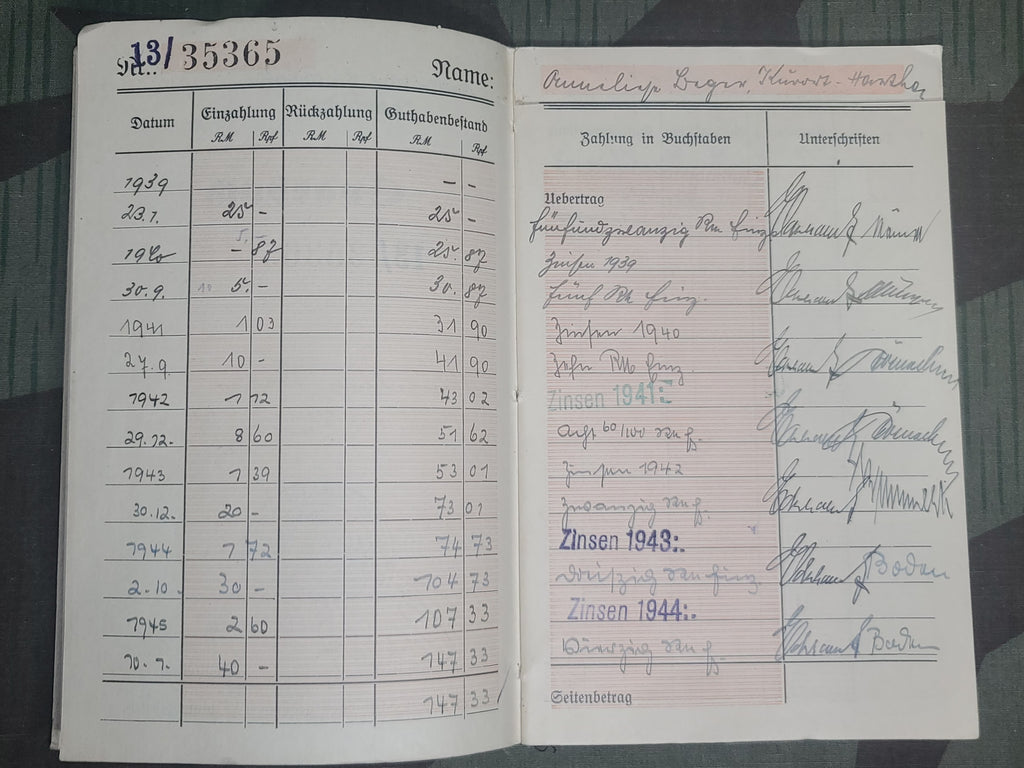 Nr.: 13/ 35365
Name: Anneliese Beger, Kurort-Hartha
Datum Einzahlung Rückzahlung Guthabenbestand Zahlung in Buchstaben Unterschriften
RM Rpf RM Rpf RM Rpf
1939 – – Uebertrag
23.1. 25 – 25 – fünfundzwanzig Rm Einz.
1940 – 87 25. 87 Zinsen 1939
30.9. 5. – 30. 87 fünf Rm Einz.
1941 1 03 31 90 Zinsen 1940
27.9. 10 – 41 90 Zehn RM Einz.
1942 1 12 43 02 Zinsen 1941:-
29.12. 8 60 51 62 Acht 60/100
1943 1 39 53 01 Zinsen 1942
30.12. 20 – 73 01 zwanzig
1944 1 72 74 73 Zinsen 1943:-
2.10. 30 – 104 73 dreißig Boden
1945 2 60 107 33 Zinsen 1944:-
10.1. 40 – 147 33 Vierzig Boden
147 33 Seitenbetrag